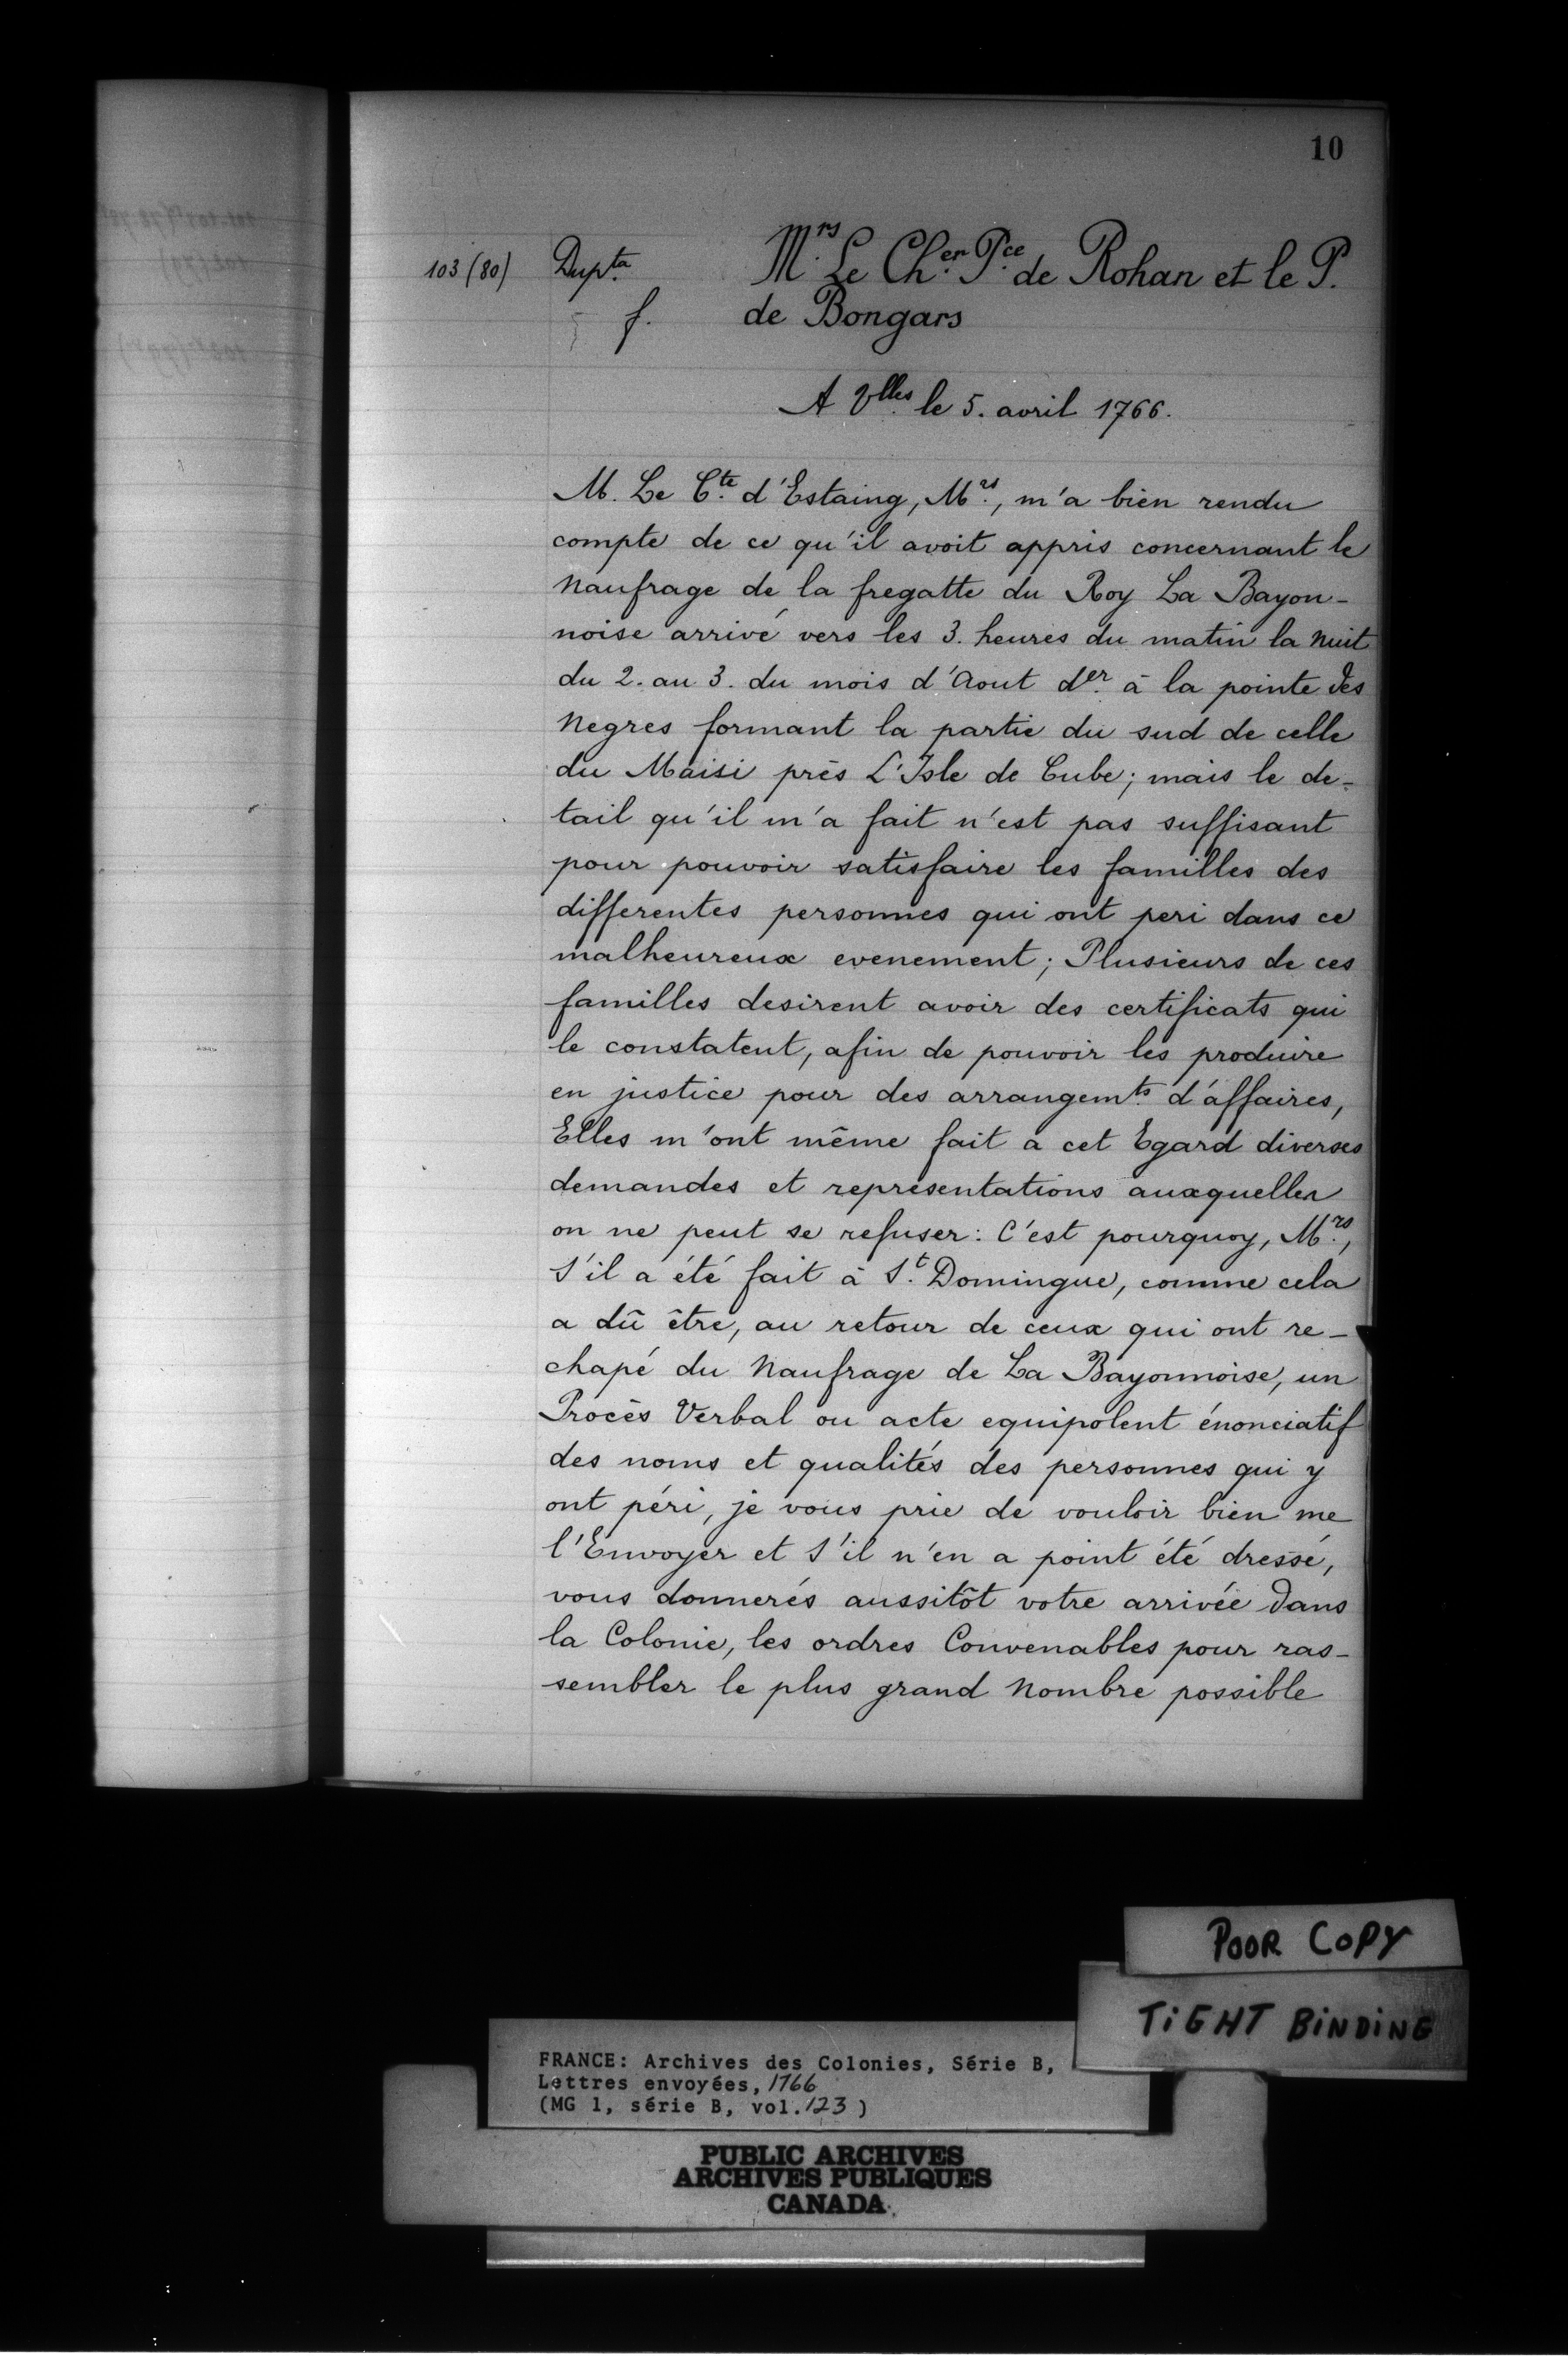 10
103 (80) Dupta Mrs. Le Cher. Pce. de Rohan et le P.
f. de Bongars
A Vlles. le 5. avril 1766.
M. Le Cte. d'Estaing, Mrs., m'a bien rendu
compte de ce qu'il avoit appris concernant le
Naufrage de la fregatte du Roy La Bayon-
noise arrivé vers les 3. heures du matin la Nuit
du 2. au 3. du mois d'Aout der. à la pointe des
Negres formant la partie du sud de celle
du Maisi près L'Isle de Cube; mais le de-
tail qu'il m'a fait n'est pas suffisant
pour pouvoir satisfaire les familles des
differentes personnes qui ont peri dans ce
malheureux evenement; Plusieurs de ces
familles desirent avoir des certificats qui
le constatent, afin de pouvoir les produire
en justice pour des arrangemts. d'affaires,
Elles m'ont même fait a cet Egard diverses
demandes et representations auxquelles
on ne peut se refuser: C'est pourquoy, Mrs.,
S'il a été fait à St. Domingue, comme cela
a dû être, au retour de ceux qui ont re-
chapé du Naufrage de La Bayonnoise, un
Procès Verbal ou acte equipolent énonciatif
des noms et qualités des personnes qui y
ont péri, je vous prie de vouloir bien me
l'Envoyer et S'il n'en a point été dressé,
vous donnerés aussitôt votre arrivée dans
la Colonie, les ordres Convenables pour ras-
sembler le plus grand Nombre possible
POOR COPY
TiGHT BiNDiNG
FRANCE: Archives des Colonies, Série B,
Lettres envoyées, 1766
(MG 1, série B, vol. 123)
PUBLIC ARCHIVES
ARCHIVES PUBLIQUES
CANADA